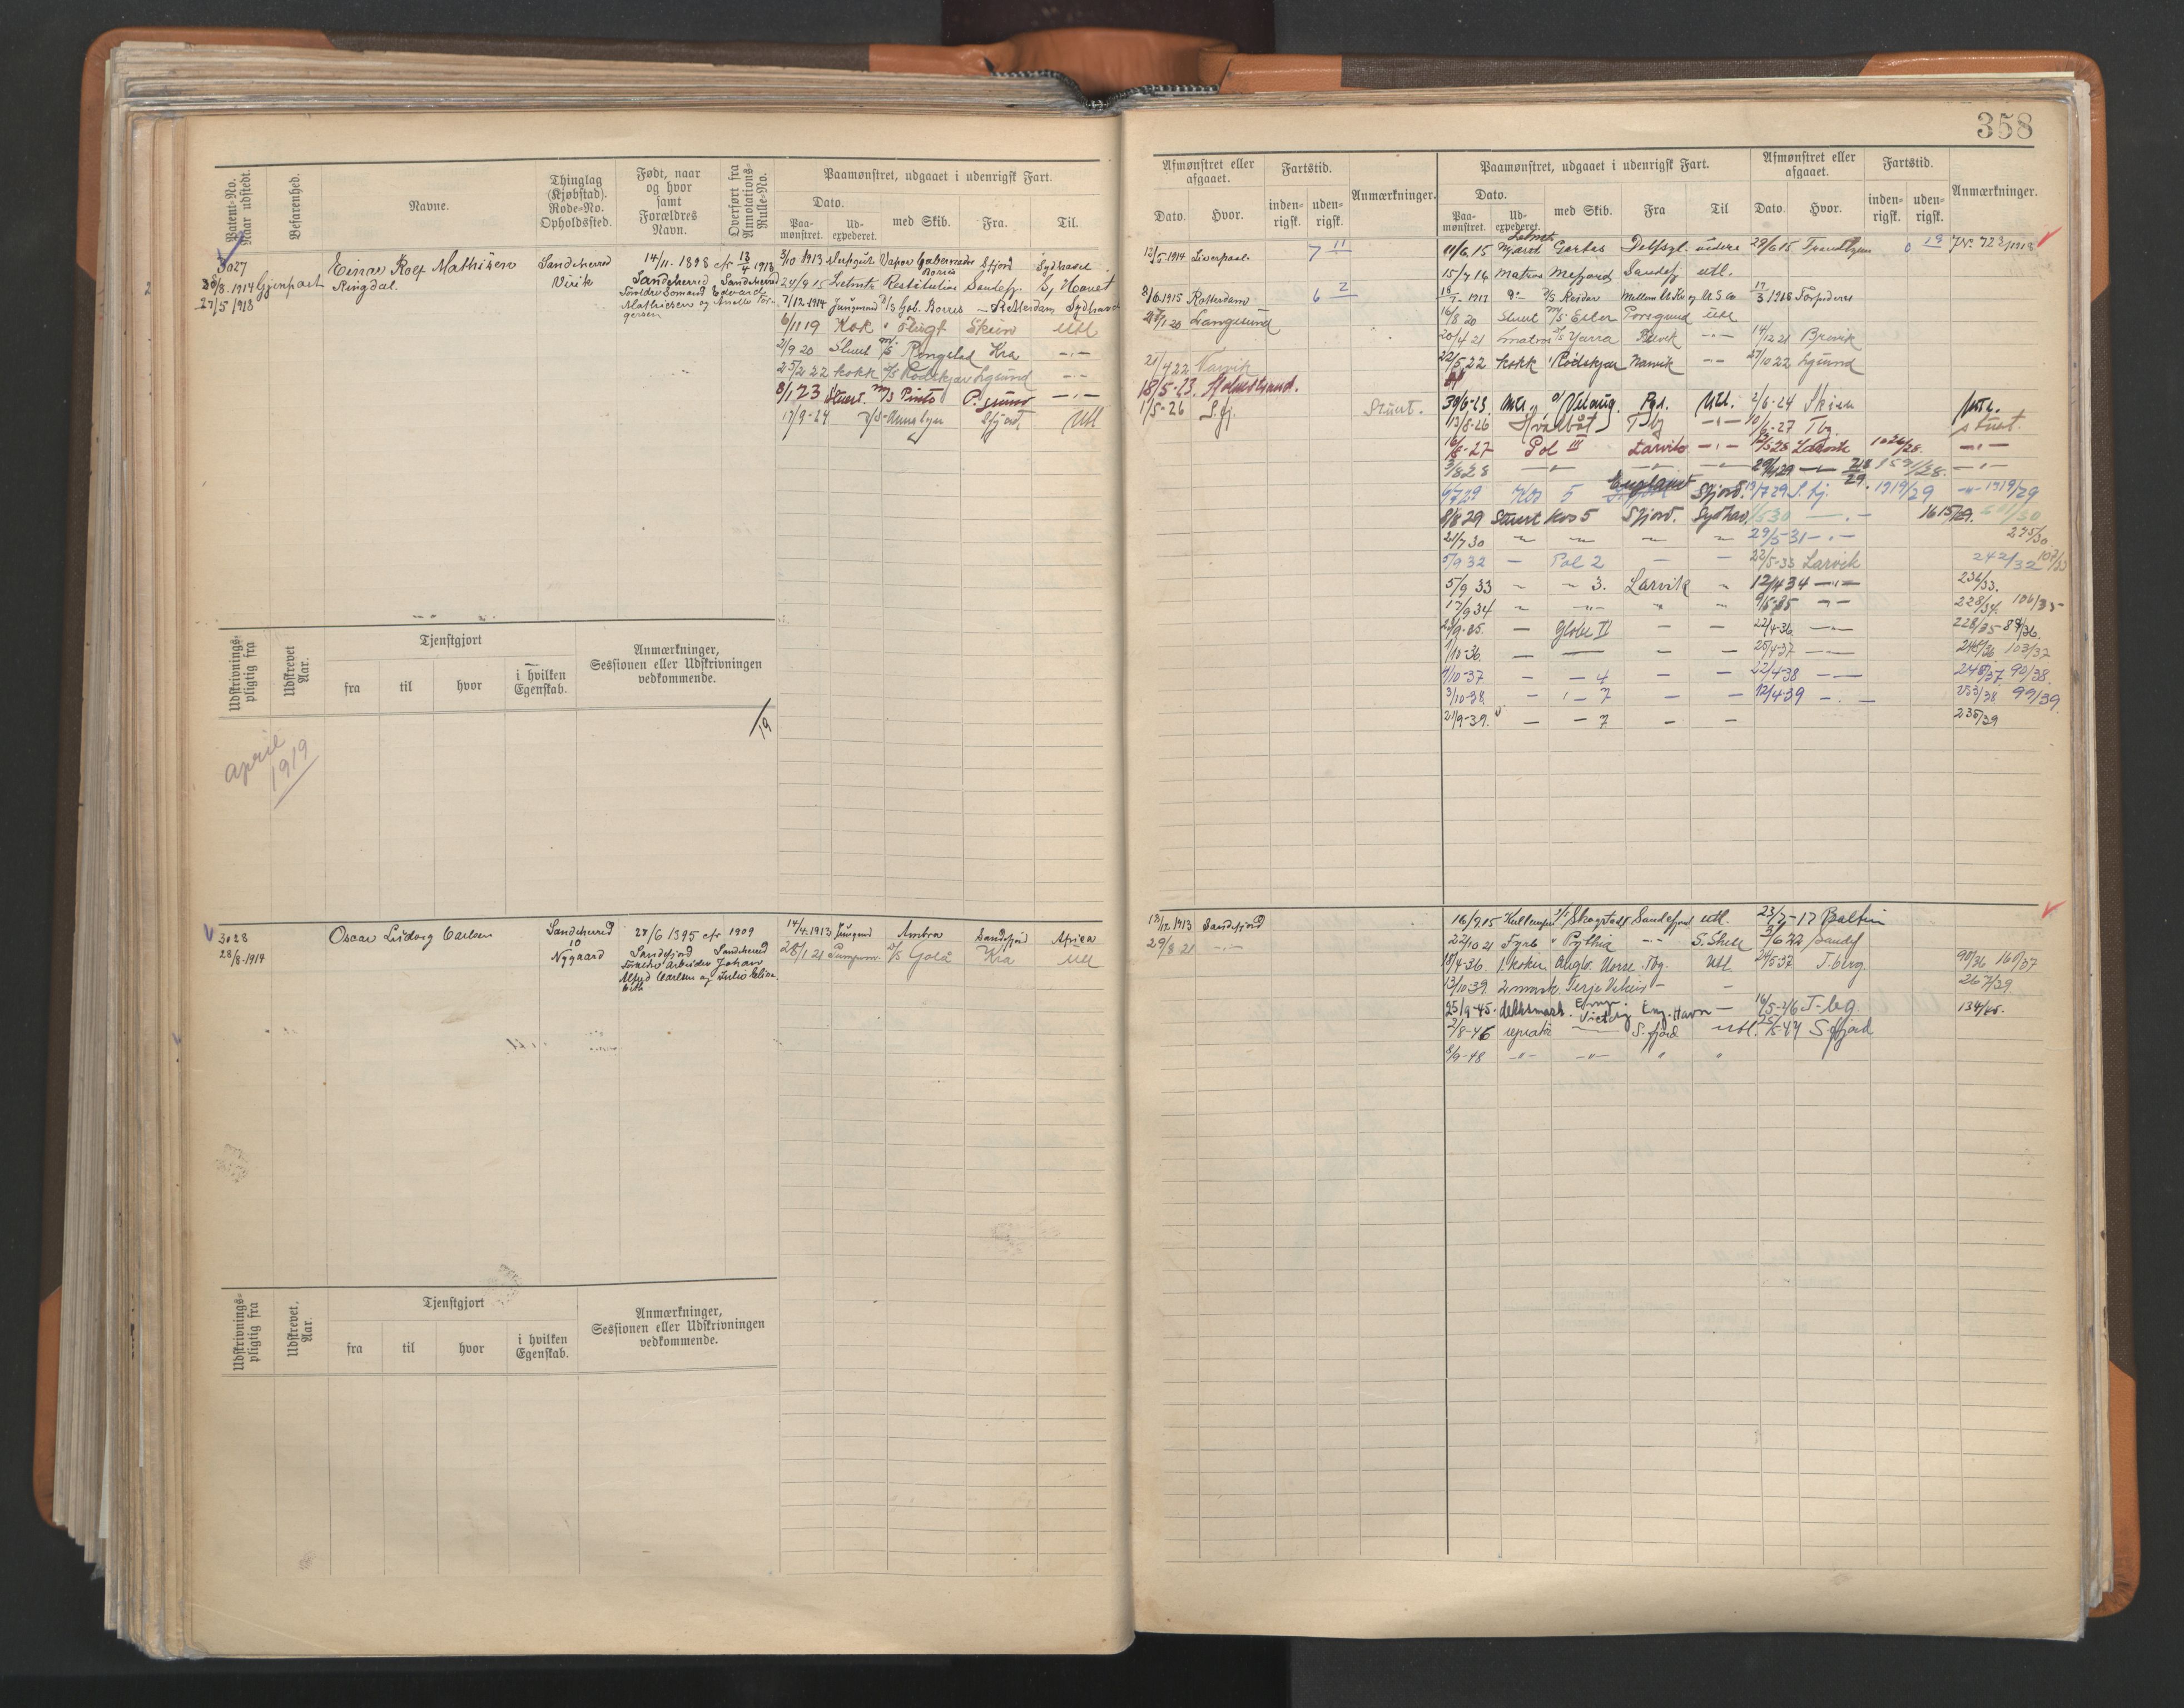 358
Patent-No. Naar udstedt.
Befarenhed.
Navne.
Thinglag (Kjøbstad). Rode-No. Opholdssted.
Født, naar og hvor samt Forældres Navn.
Overført fra Annotations-Rulle-No.
Paamønstret, udgaaet i udenrigsk Fart.
Dato.
Paa-mønstret.
Ud-expederet.
med Skib.
Fra.
Til.
Afmønstret eller afgaaet.
Dato.
Hvor.
Fartstid.
inden-rigsk.
uden-rigsk.
Anmærkninger.
Paamønstret, udgaaet i udenrigsk Fart.
Dato.
Paa-mønstret.
Ud-expederet.
med Skib.
Fra
Til
Afmønstret eller afgaaet.
Dato.
Hvor.
Fartstid.
inden-rigsk.
uden-rigsk.
Anmærkninger.
3027
28/8.1914 Gjenpart
27/5 1918
Einar Rolf Mathisen
Ringdal.
Sandeherred
Virik
14/11. 1898
13/4 1913
Sandeherred Sandeherred
Forældre Sømand Edvard
Mathisen og Amalie Tor-
gersen
3/10 1913 Vapor Gobernador Sfjord Sydhavet
Borries
24/9 15 Letmtr Restitution Sandefj. S. Havet
7/12-1914 Jungmand D/S Gob. Borres Rotterdam Sydhavet
6/11 19 Kok Skien Utl
2/9 20 Stuert m/s Ringstad Kra -"-
25/2 22 kokk Rødskjær Lgsund -"-
8/1 23 Stuert. m/s Pinto P.grund -"-
17/9-24 Sfjord Utl
12/5 1914 Liverpool. 7 11
8/6 1915 Rotterdam 6 2
20 Langesund
21/4 22 Narvik
18/5-23. Holmestrand.
1/5-26 S.fj. Stuert.
Letmtr
11/6.15 Gerbas Delfzyl. videre 29/6 15 Trondhjem 0 19 Nr. 723/1918
15/7 16 Matros Mefjord Sandefj utl.
1917 D/S Reidar 17/3 1918 Torpederes
16/8 20 Stuert m/s Ester Porsgrund Utl
20/4 21 Matros Yarra Brevik -"- 14/12 21 Brevik
22/5 22 kokk Rødskjær Narvik -"- 27/10 22 Lgsund
30/6-23. Velaug. Pgr. Utl. 2/6-24 Skien
13/8-26 Hvalbåt Tbg -"- 10/6-27 Tbg. stuert.
16/8-27 Pol III Larvik -"- 28 Larvik 1026/28. -"-
3/8 28 -"- -"- -"- 29 -"- 1591/28. -"-
6/7 29 Kos 5 England Sfjord. 19/7 29 S.fj. 1919/29 -"- 1919/29
8/8 29 Stuert Kos 5 Sfjord. Sydhav. /5 30 -"- 1615/29. /30
21/7 30 29/5-31 -"- 275/30
5/9 32 - Pol 2 - - 22/5-33 Larvik 242/32 107/33
5/9 33 " " 3. Larvik " 12/4 34 -"- 236/33.
17/9 34 " -"- " " 9/5-35 -"- 228/34. 106/35
9-35. - Globe II - - 22/4-36. -"- 228/35 - 88/36.
1/10-36. - - - - 25/4-37 -"- 245/36 103/37
4/10-37 - - 4 - - 22/4-38 - - 248/37. 90/38.
3/10-38. - - 7 - - 12/4 39 -"- 253/38. 99/39.
21/9-39. - - 7 - - 235/39
Udskrivnings-pligtig fra
Udskrevet Aar.
Tjenstgjort
fra
til
hvor
i hvilken Egenskab.
Anmærkninger, Sessionen eller Udskrivningen vedkommende.
april
1919
/19
3028
28/8.1914
Oscar Ludvig Carlsen
Sandeherred
10
Nygaard
27/6 1895 1909
Sandefjord Sandeherred
Forældre Arbeider Johan
Alfred Carlsen og Julie Elisa-
beth
14/4.1913 Jungmd Ambra Sandefjord Africa
28/1 21 Pumpem. D/S Golå Kra Utl
13/12.1913 Sandefjord
29/8 21 -"-
16/9.15 Kullemper D/S Skogstad Sandefjord utl. 23/7-17 Baltim
22/10 21 Fyrb Pythia -"- S. Shetl 3/6 22 Sandef
18/4-36. 1. koker Anglo Norse. Tbg. Utl. 24/5-37 T.berg. 90/36 160/37
13/10-39. 2 mask. Terje Viken - - 267/39
25/9-45. dekksmask. Emp. Victory Eng. Havn - 16/5-46 T-bg. 134/45.
2/8-46 reparatør -"- S.fjord utl. 25/5-47 S.fjord
8/9-48 -"- -"- " "
Udskrivnings-pligtig fra
Udskrevet. Aar.
Tjenstgjort
fra
til
hvor
i hvilken Egenskab.
Anmærkninger, Sessionen eller Udskrivningen vedkommende.